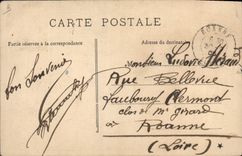 CARTE POSTALE
Partie réservée à la correspondance
Adresse du destinataire
ROANNE
Monsieur Ludovic
Rue Bellevue
Faubourg Clermont
clos de Mr Gérard
à
Roanne
(Loire)
bon Souvenir